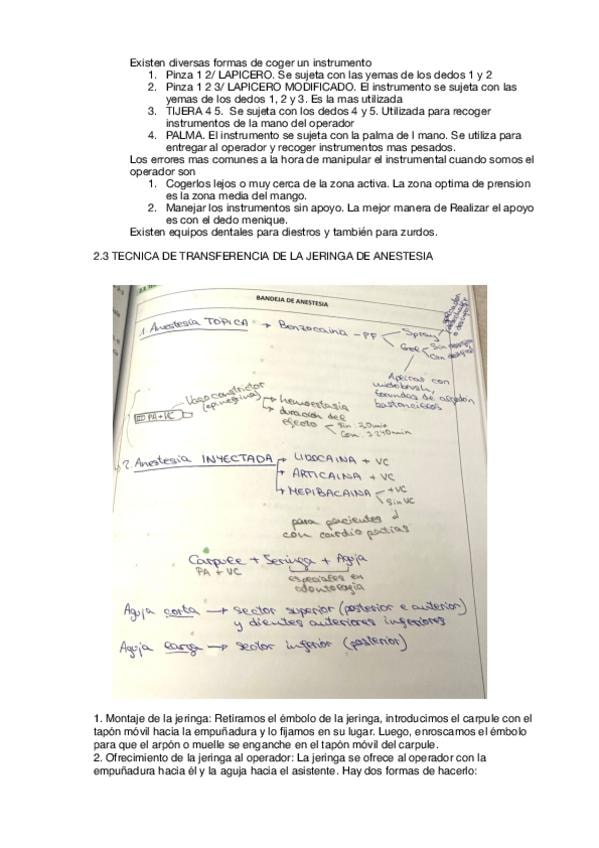 Existen diversas formas de coger un instrumento
1. Pinza 1 2/ LAPICERO. Se sujeta con las yemas de los dedos 1 y 2
2. Pinza 1 2 3/ LAPICERO MODIFICADO. El instrumento se sujeta con las
yemas de los dedos 1, 2 y 3. Es la mas utilizada
3. TIJERA 4 5.  Se sujeta con los dedos 4 y 5. Utilizada para recoger
instrumentos de la mano del operador
4. PALMA. El instrumento se sujeta con la palma de l mano. Se utiliza para
entregar al operador y recoger instrumentos mas pesados.
Los errores mas comunes a la hora de manipular el instrumental cuando somos el
operador son
1. Cogerlos lejos o muy cerca de la zona activa. La zona optima de prension
es la zona media del mango.
2. Manejar los instrumentos sin apoyo. La mejor manera de Realizar el apoyo
es con el dedo menique.
Existen equipos dentales para diestros y también para zurdos.
2.3 TECNICA DE TRANSFERENCIA DE LA JERINGA DE ANESTESIA
BANDEJA DE ANESTESIA
1. Anestesia TÓPICA → Benzocaína - PF
Spray
Gel
Sin
Con
Aplicar con
microbrush,
torundas de algodón
bastoncillos
Vasoconstrictor
(epinefrina)
PA + VC
hemostasia
duración del
efecto
Sin: 20min
Con:
2. Anestesia INYECTADA → LIDOCAINA + VC
→ ARTICAINA + VC
→ MEPIBACAINA
+VC
sin VC
para pacientes
con cardiopatias
Carpule + Jeringa + Aguja
PA + VC
especiales en
odontología
Aguja corta → sector superior (posterior e anterior)
y dientes anteriores inferiores
Aguja larga → sector inferior (posterior)
1. Montaje de la jeringa: Retiramos el émbolo de la jeringa, introducimos el carpule con el
tapón móvil hacia la empuñadura y lo fijamos en su lugar. Luego, enroscamos el émbolo
para que el arpón o muelle se enganche en el tapón móvil del carpule.
2. Ofrecimiento de la jeringa al operador: La jeringa se ofrece al operador con la
empuñadura hacia él y la aguja hacia el asistente. Hay dos formas de hacerlo: